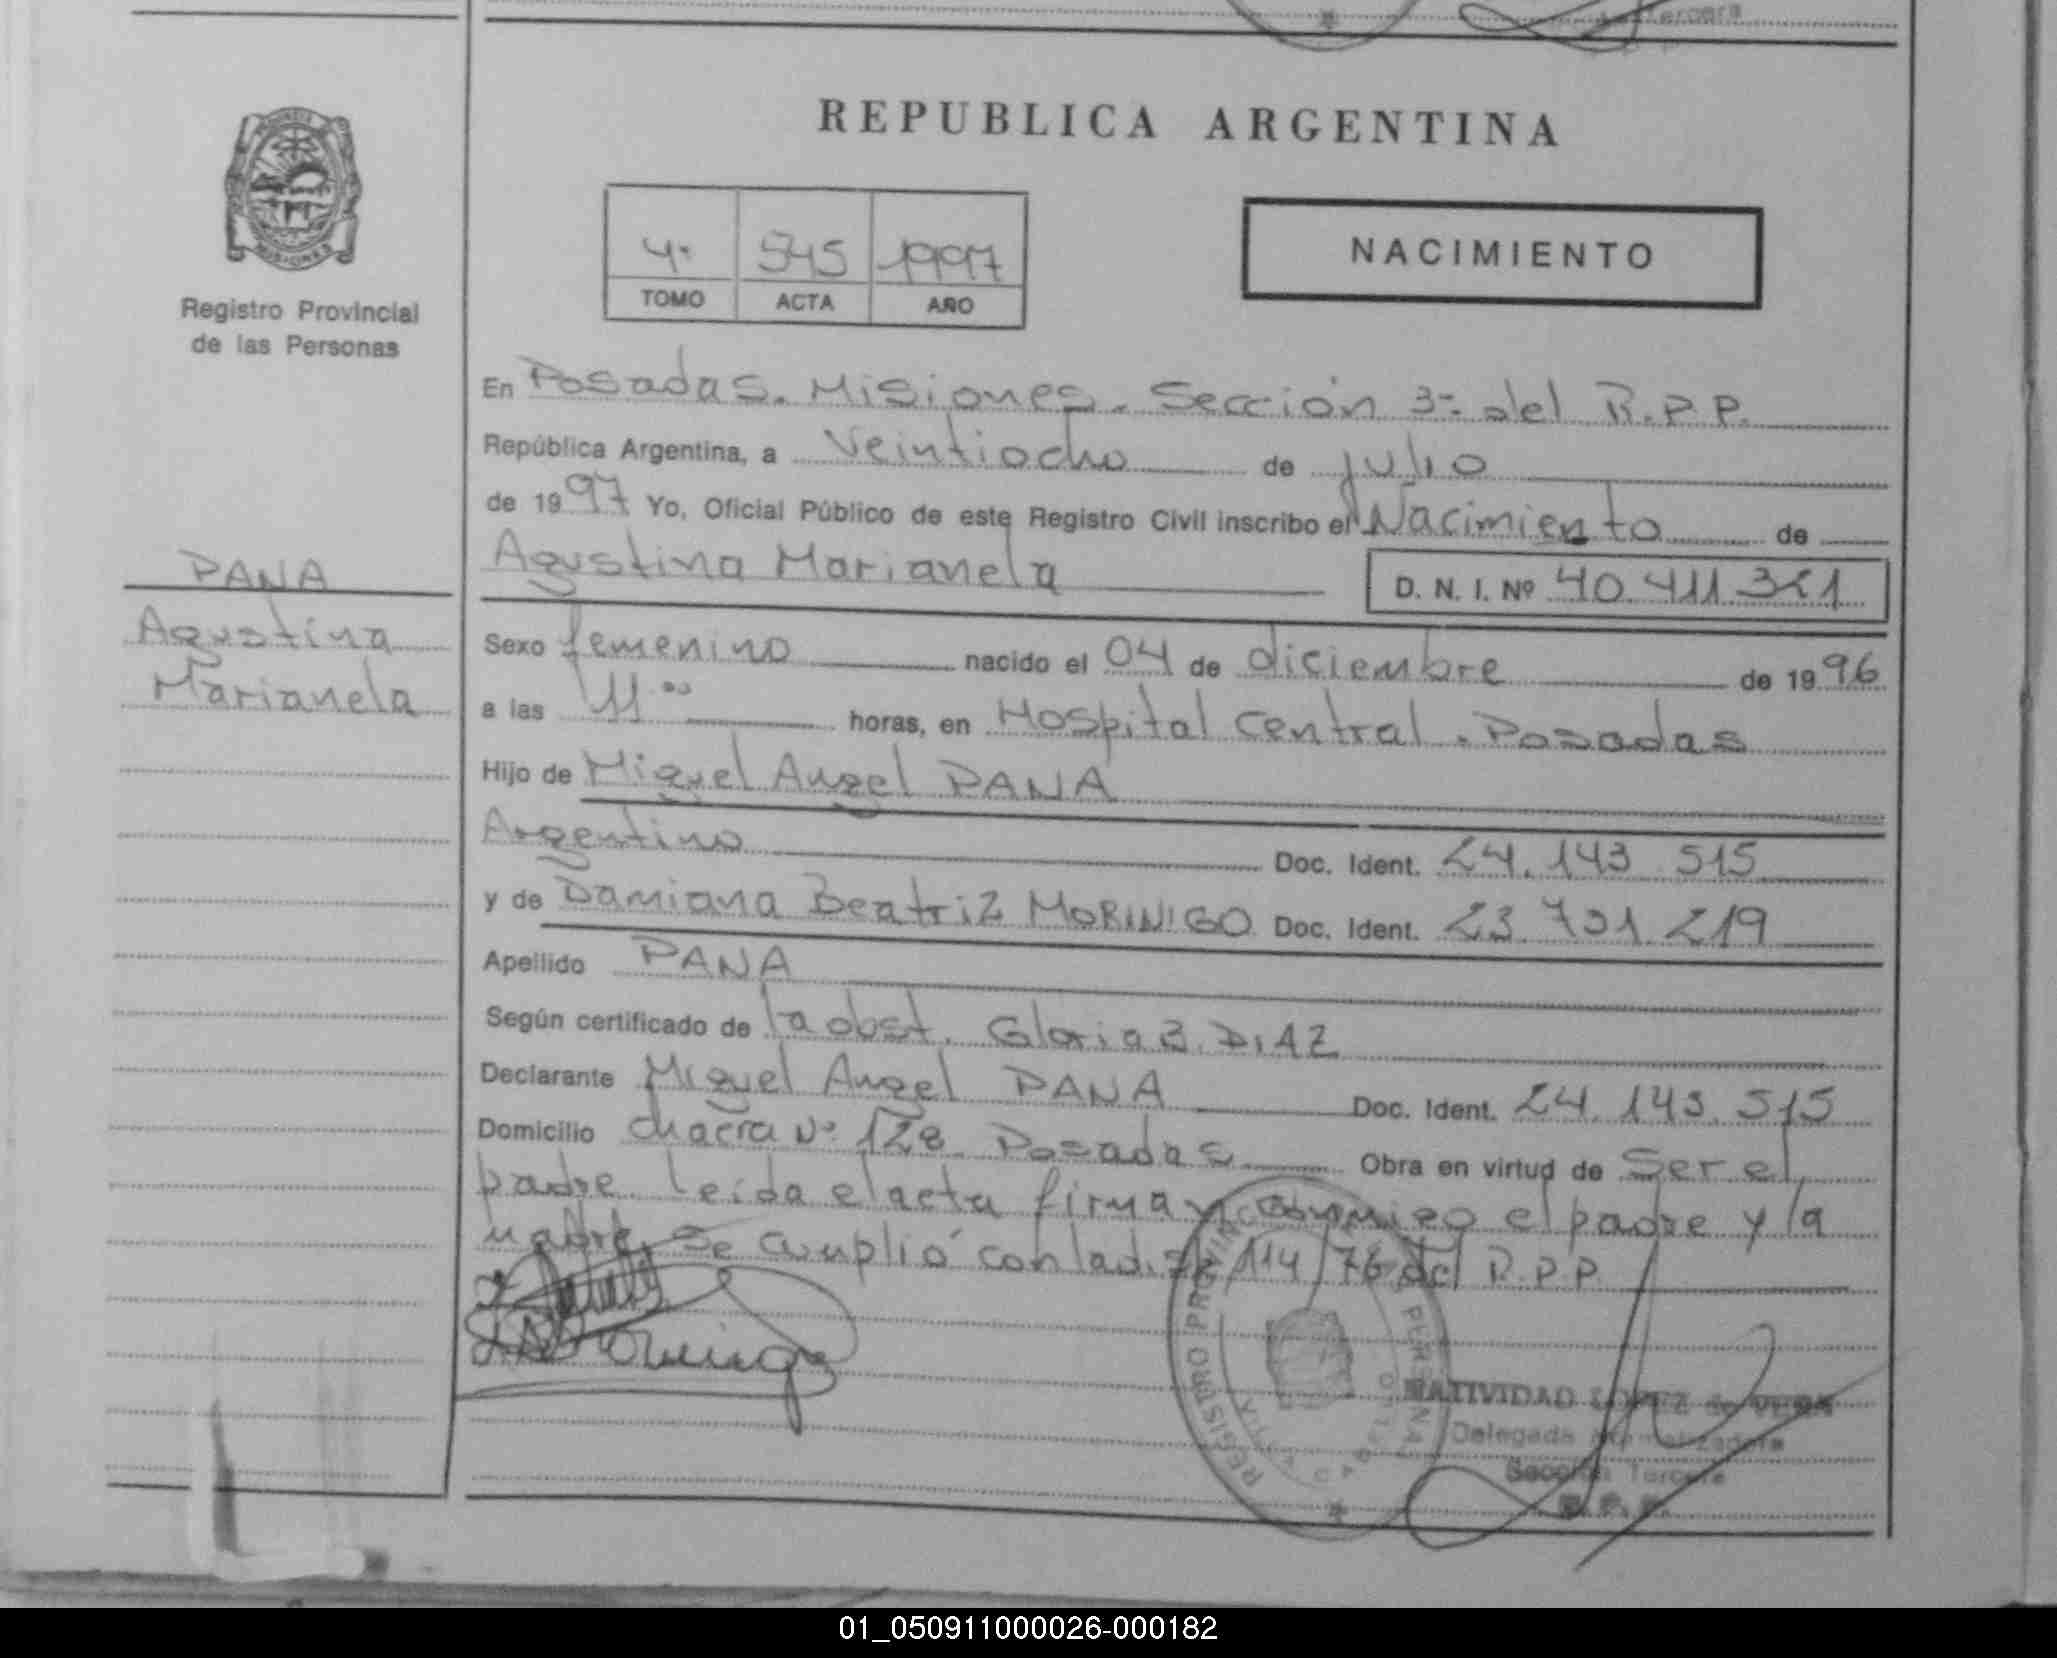 Tercera
REPUBLICA ARGENTINA
MISIONES
Registro Provincial
de las Personas
4º 545 1997
TOMO ACTA AÑO
NACIMIENTO
En Posadas. Misiones. Sección 3ª del R.P.P.
República Argentina, a Veintiocho de julio
de 1997 Yo, Oficial Público de este Registro Civil inscribo el Nacimiento de
PANA
Agustina Marianela
Agustina Marianela D. N. I. Nº 40.411.321
Sexo femenino nacido el 04 de diciembre de 1996
a las 11.00 horas, en Hospital Central. Posadas
Hijo de Miguel Angel PANA
Argentino Doc. Ident. 24.143.515
y de Damiana Beatriz MORINIGO Doc. Ident. 23.731.219
Apellido PANA
Según certificado de la obst. Gloria B. DIAZ
Declarante Miguel Angel PANA Doc. Ident. 24.143.515
Domicilio chacra Nº 128 Posadas Obra en virtud de Ser el
padre. Leída el acta firma y conmigo el padre y la
madre. Se cumplió con la di. 114/76 del R.P.P.
REGISTRO PROVINCIAL PERSONAS
NATIVIDAD LOPEZ de VERA
Delegada Normalizadora
Sección Tercera
R.P.P.
01_050911000026-000182